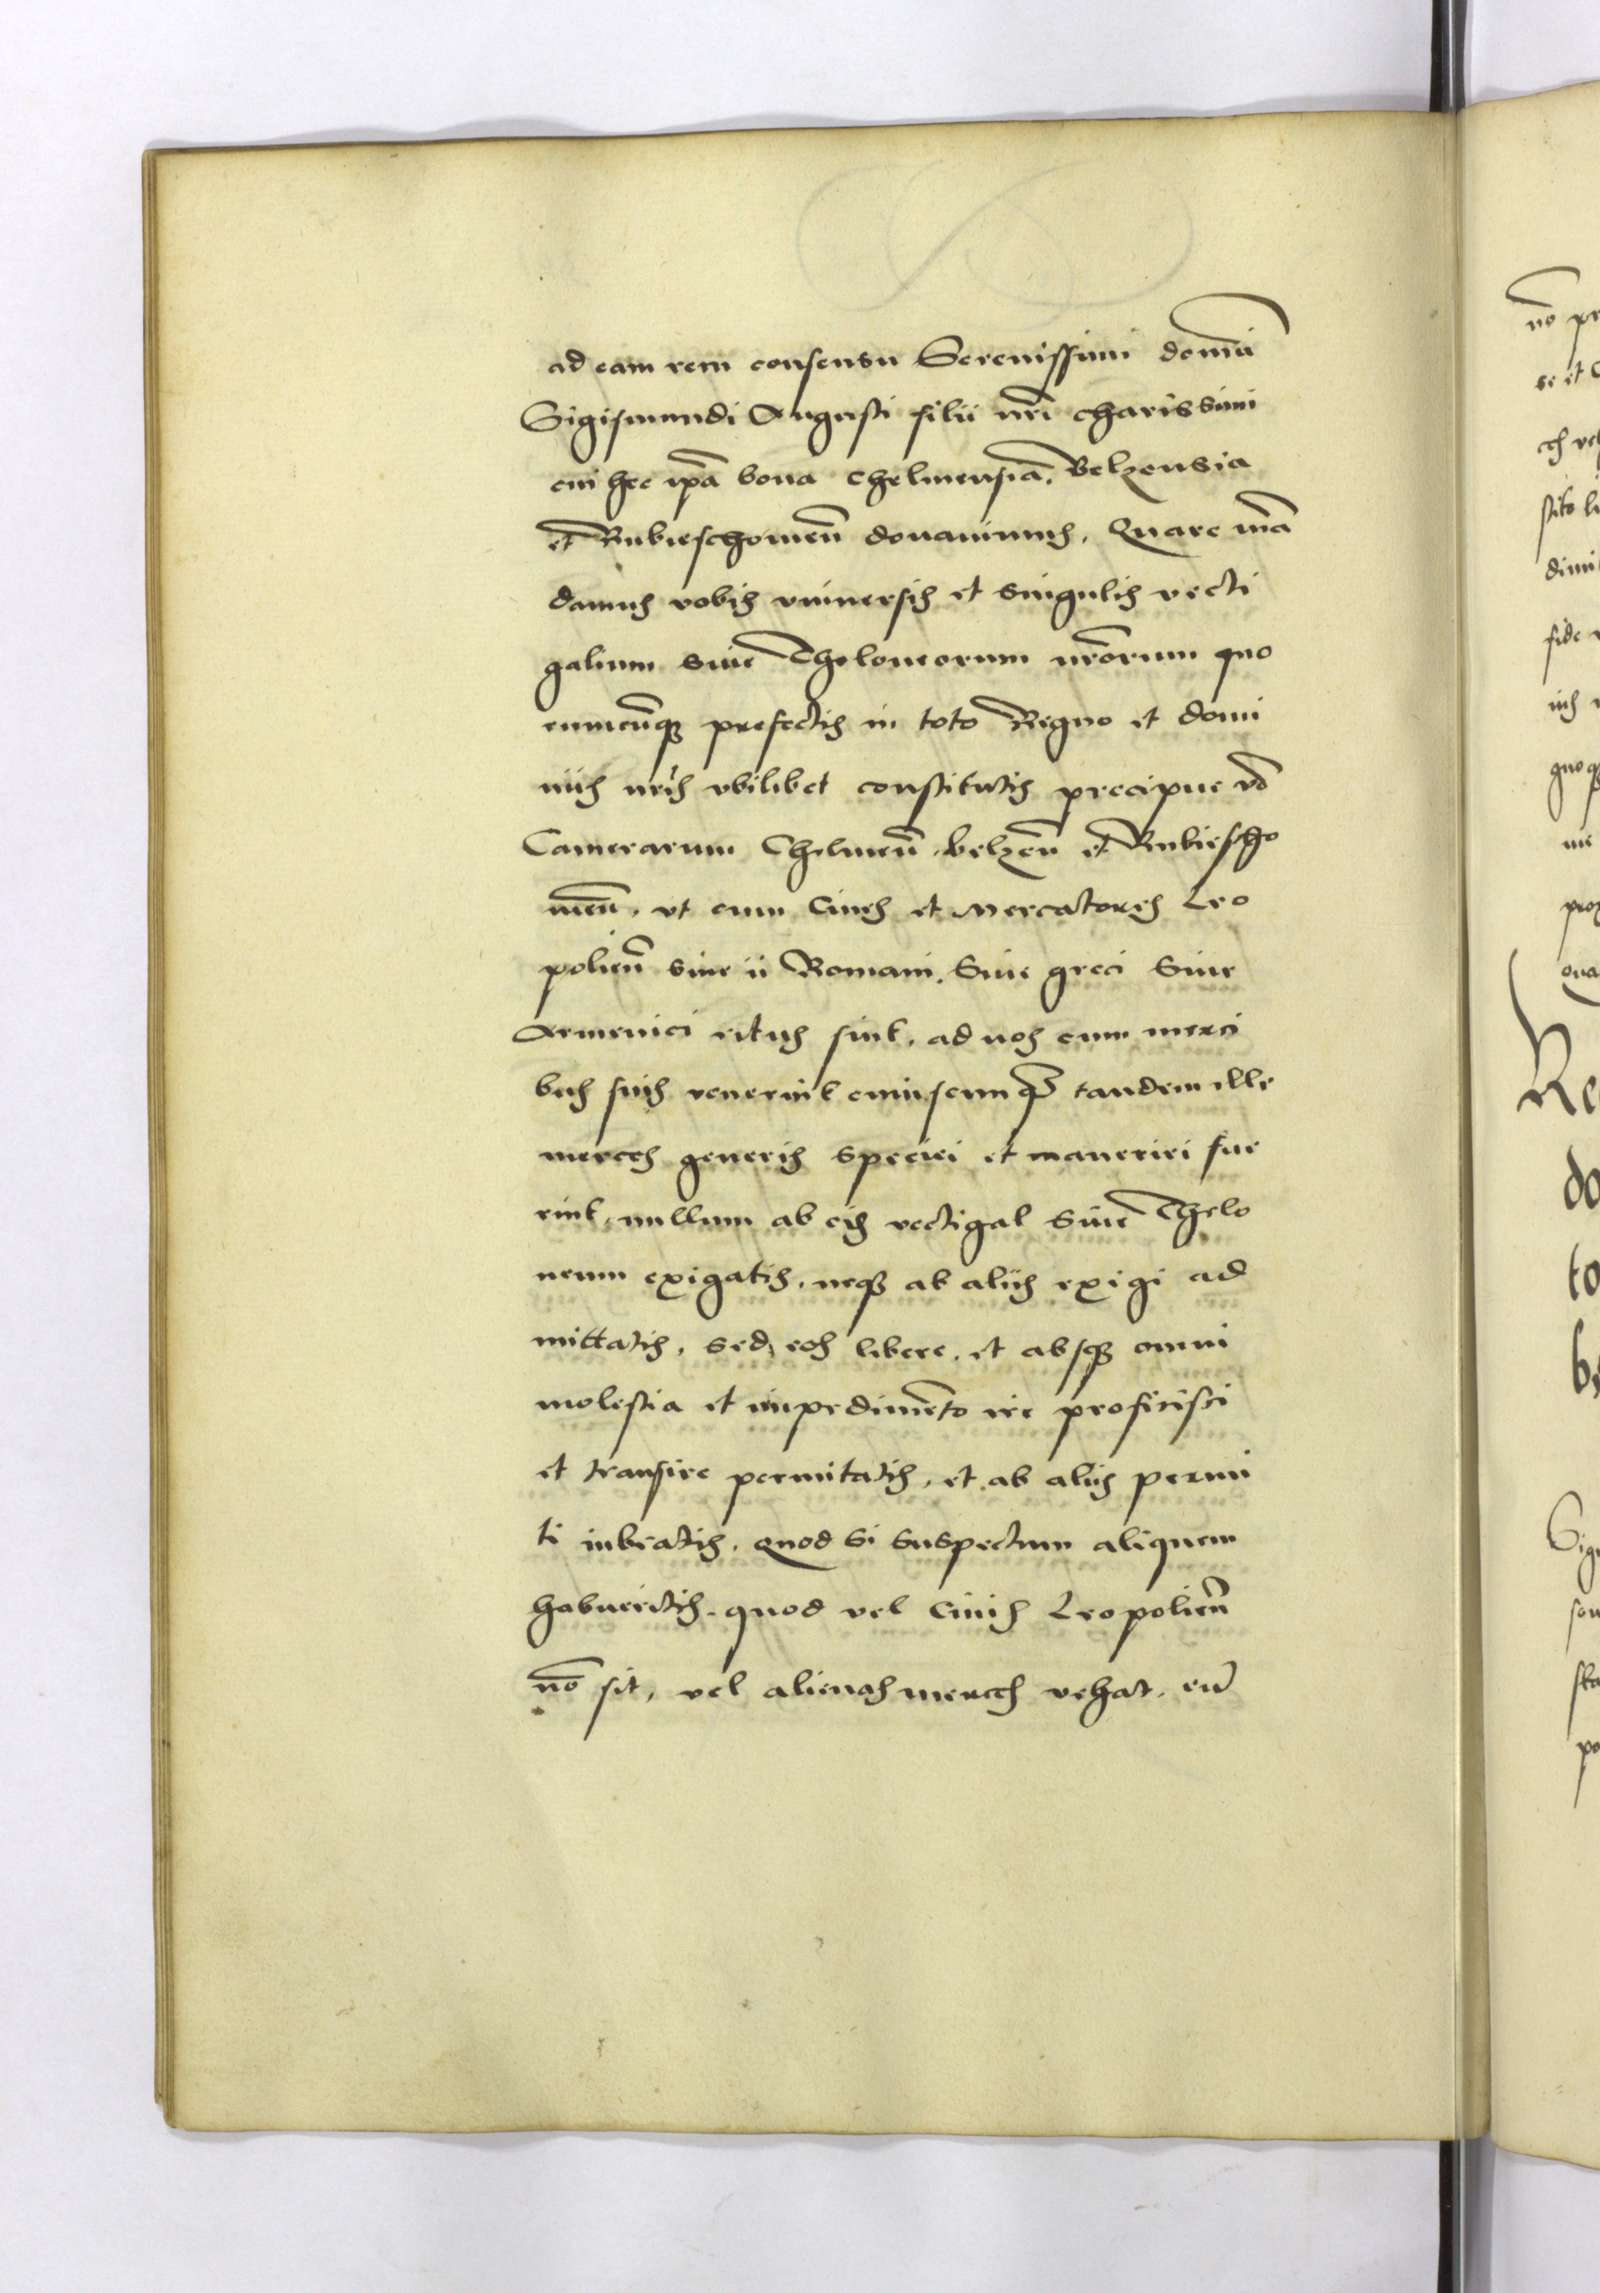 ad eam rem consensu Serenissimi domini
Sigismundi Augusti filii nri charissimi
cui hec ipa bona Chelmensia, Belzensia
et Rubieschouien donauimus. Quare man
damus vobis vniuersis et singulis vecti
galium siue Theloneorum nrorum quo
rumcunq prefectis in toto Regno et domi
niis nris vbilibet constitutis precipue vo
Camerarum Chelmen, belzen et Rubiescho
uien, vt cum Ciues et Mercatores Leo
polien siue ii Romani, Siue greci Siue
Armenici ritus sint, ad vos cum merci
bus suis venerint cuiuscunq tandem ille
merces generis speciei et maneriei fue
rint, nullum ab eis vectigal Siue Thelo
neum exigatis, neq ab aliis exigi ad
mittatis, sed eos libere, et absq omni
molestia et impedimento ire proficisci
et transire permitatis, et ab aliis permi
ti iubeatis. Quod Si Suspectum aliquem
habueritis, quod vel Ciuis Leopolien
no sit, vel alienas merces vehat, eu
no
se et
ces